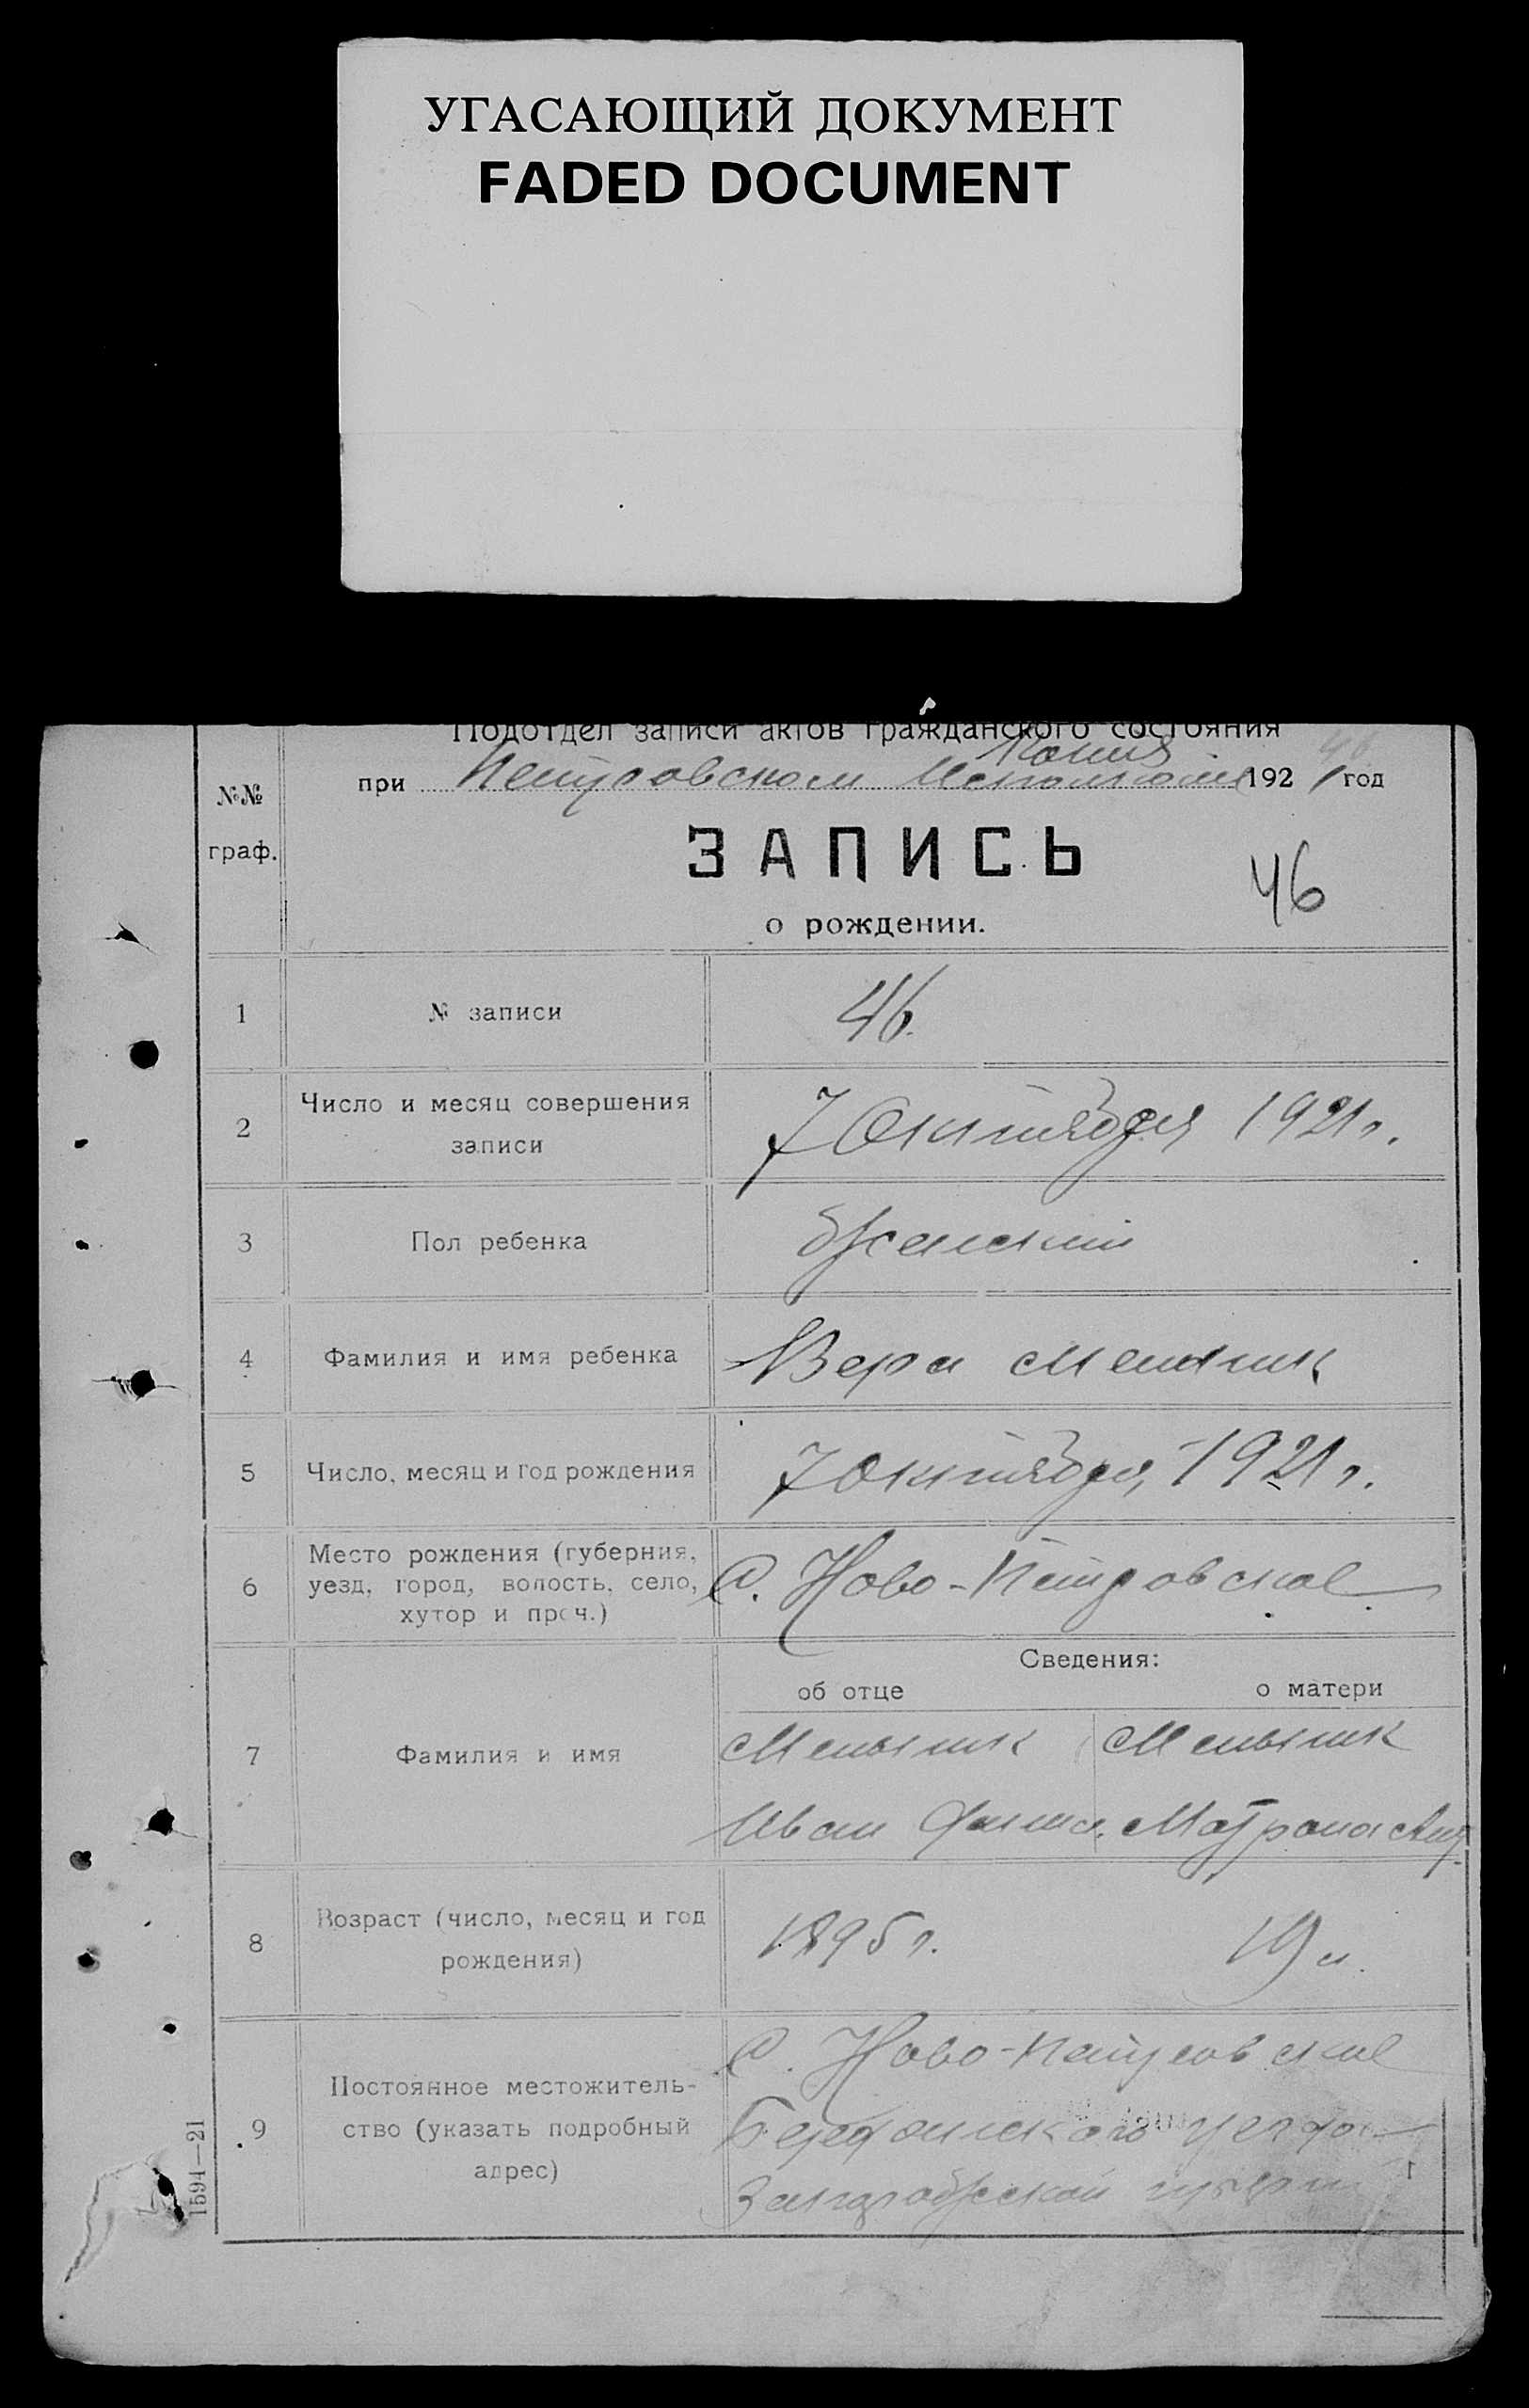 УГАСАЮЩИЙ ДОКУМЕНТ
FADED DOCUMENT
Подотдел записи актов гражданского состояния
Копия
при Петровском Исполкоме 1921 год
46
№№
граф.
ЗАПИСЬ
46
о рождении.
1 № записи 46.
2 Число и месяц совершения
записи
7 Октября 1921 г.
3 Пол ребенка Женский
4 Фамилия и имя ребенка Вера Мельник
5 Число, месяц и год рождения 7 Октября 1921 г.
6 Место рождения (губерния,
уезд, город, волость, село,
хутор и проч.)
С. Ново-Петровское
Сведения:
об отце о матери
7 Фамилия и имя
Мельник Мельник
Иван Матрона
8 Возраст (число, месяц и год
рождения)
1895 г. 19 л.
9 Постоянное местожитель-
ство (указать подробный
адрес)
С. Ново-Петровское
Бердянского уезда
Запорожской губернии
1594—21